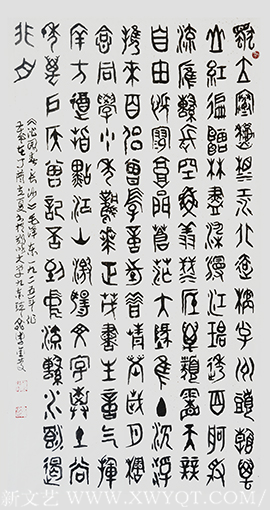 獨立寒秋湘江北去橘子洲頭看萬
山紅遍層林盡染漫江碧透百舸爭
流鷹擊長空魚翔淺底萬類霜天競
自由悵寥廓問蒼茫大地誰主沉浮
攜來百侶曾游憶往昔崢嶸歲月稠
恰同學少年風華正茂書生意氣揮
斥方遒指點江山激揚文字糞土當
年萬戶侯曾記否到中流擊水浪遏
飛舟
《沁园春·长沙》毛泽东一九二五年作
丁酉立夏
新文艺 WWW.XWYQT.COM